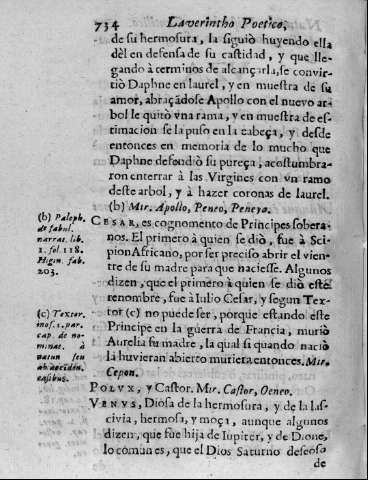 734 Laverintho Poetico,
de su hermosura, la siguiò huyendo ella
dèl en defensa de su castidad, y que lle-
gando à terminos de alcançarla, se convir-
tiò Daphne en laurel, y en muestra de su
amor, abraçãdose Apollo con el nuevo ar-
bol le quitò vna rama, y en muestra de es-
timacion se la puso en la cabeça, y desde
entonces en memoria de lo mucho que
Daphne defendiò su pureça, acostumbra-
ron enterrar à las Virgines con vn ramo
deste arbol, y à hazer coronas de laurel.
(b) Mir. Apollo, Peneo, Peneya.
CESAR, es cognomento de Principes sobera-
nos. El primero à quien se diò, fue à Sci-
pion Africano, por ser preciso abrir el vien-
tre de su madre para que naciesse. Algunos
dizen, que el primero à quien se diò este
renombre, fue à Iulio Cesar, y segun Tex-
tor (c) no puede ser, porque estando este
Principe en la guerra de Francia, muriò
Aurelia su madre, la qual si quando naciò
la huvieran abierto muriera entonces. Mir.
Cepon.
POLVX, y Castor. Mir. Castor, Oeneo.
VENVS, Diosa de la hermosura, y de la las-
civia, hermosa, y moça, aunque algunos
dizen, que fue hija de Iupiter, y de Dione,
lo comun es, que el Dios Saturno deseoso
de
(b) Paleph.
de fabul.
narrat. lib.
1. fol. 118.
Higin. fab.
203.
(c) Textor.
mos. 1. par.
cap. de no-
minat. à
natun seu
ab acciden.
casibus.